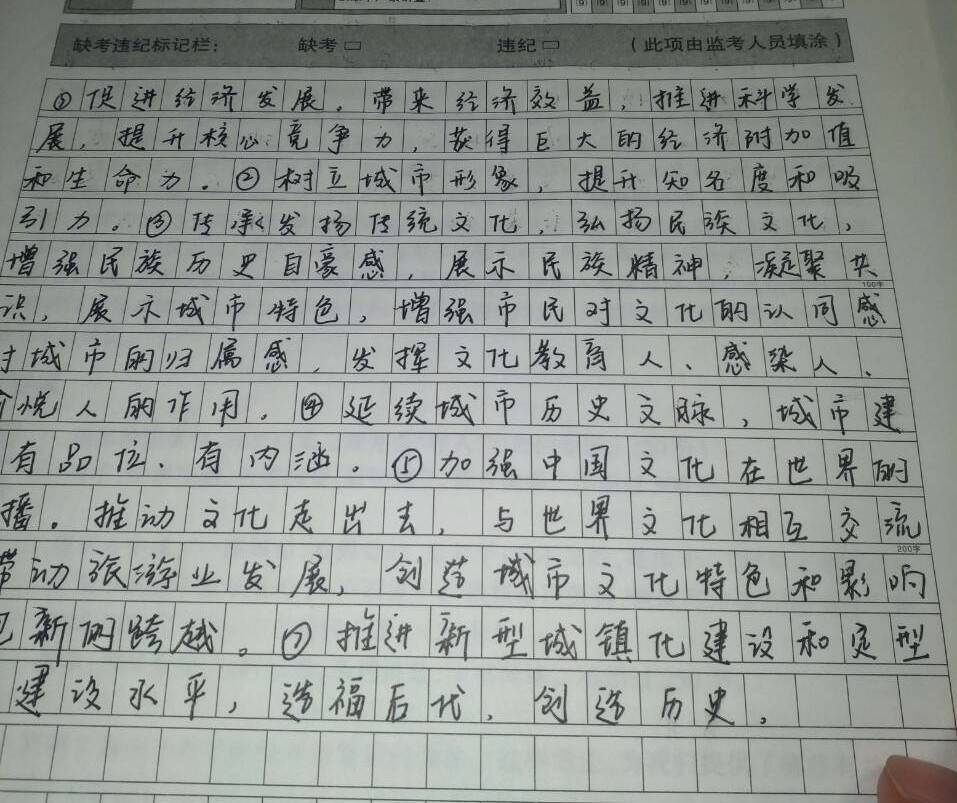 缺考违纪标记栏： 缺考 违纪 （此项由监考人员填涂）
①促进经济发展。带来经济效益，推进科学发
展，提升核心竞争力，获得巨大的经济附加值
和生命力。②树立城市形象，提升知名度和吸
引力。③传承发扬传统文化，弘扬民族文化，
增强民族历史自豪感，展示民族精神，凝聚共
100字
识，展示城市特色，增强市民对文化的认同感
城市的归属感，发挥文化教育人、感染人、
悦人的作用。④延续城市历史文脉，城市建
有品位、有内涵。⑤加强中国文化在世界的
播。推动文化走出去，与世界文化相互交流
200字
带动旅游业发展，创造城市文化特色和影响
新的跨越。⑦推进新型城镇化建设和定型
建设水平，造福后代，创造历史。